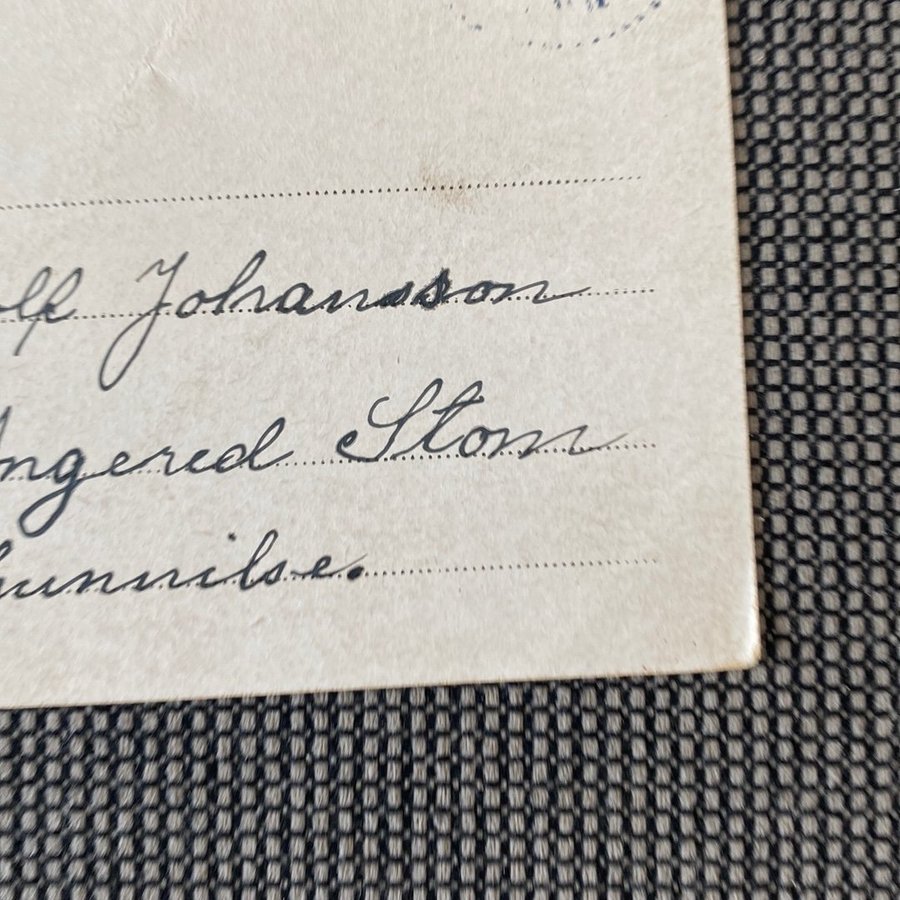 olf Johansson
Angered Stom
Gunnilse.